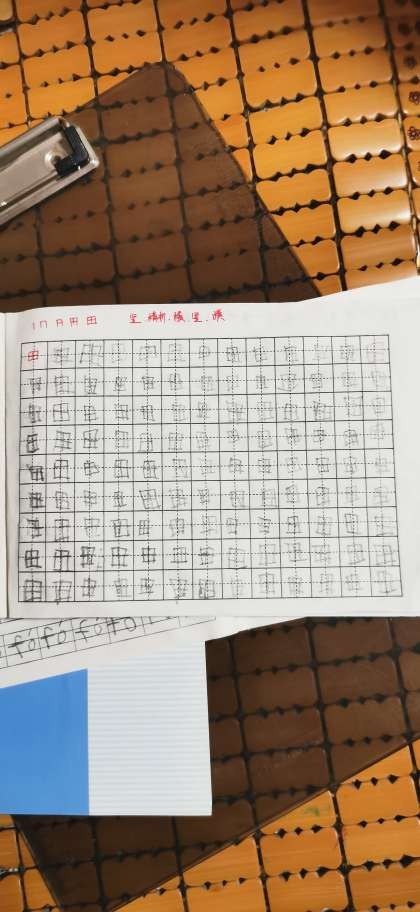 丨 冂 日 用 田 竖、横折、横、竖、横
田 田 田 田 田 田 田 田 田 田 田 田 田
田 田 田 田 田 田 田 田 田 田 田 田 田
田 田 田 田 田 田 田 田 田 田 田 田 田
田 田 田 田 田 田 田 田 田 田 田 田 田
田 田 田 田 田 田 田 田 田 田 田 田 田
田 田 田 田 田 田 田 田 田 田 田 田 田
田 田 田 田 田 田 田 田 田 田 田 田 田
田 田 田 田 田 田 田 田 田 田 田 田 田
田 田 田 田 田 田 田 田 田 田 田 田 田
fó fó fó